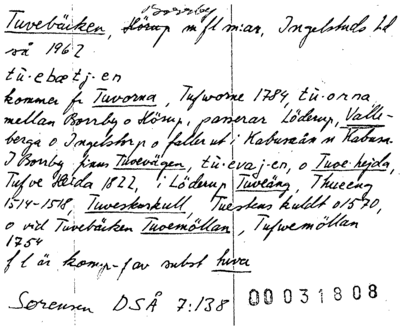 Borrby
Tuvebäcken, Hörup m fl m:ar, Ingelstads hd
så 1962
tù-ebætj-en
kommer fr Tuvorna, Tufworne 1784, tù-orna
mellan Borrby o Hörup, passerar Löderup, Valle-
berga o Ingelstorp o faller ut i Kabusaån n Kabusa
I Borrby finns Tuvevägen, tù-evaj-en, o Tuve hejda,
Tufve Heida 1822, i Löderup Tuveäng, Thueeng
1514-1518 Tuveskorkull, Tuestens kuldt o1570,
o vid Tuvebäcken Tuvemöllan, Tufwemöllan
1754
f l är komp-f av subst tuva
Sørensen DSÅ 7:138 00031808